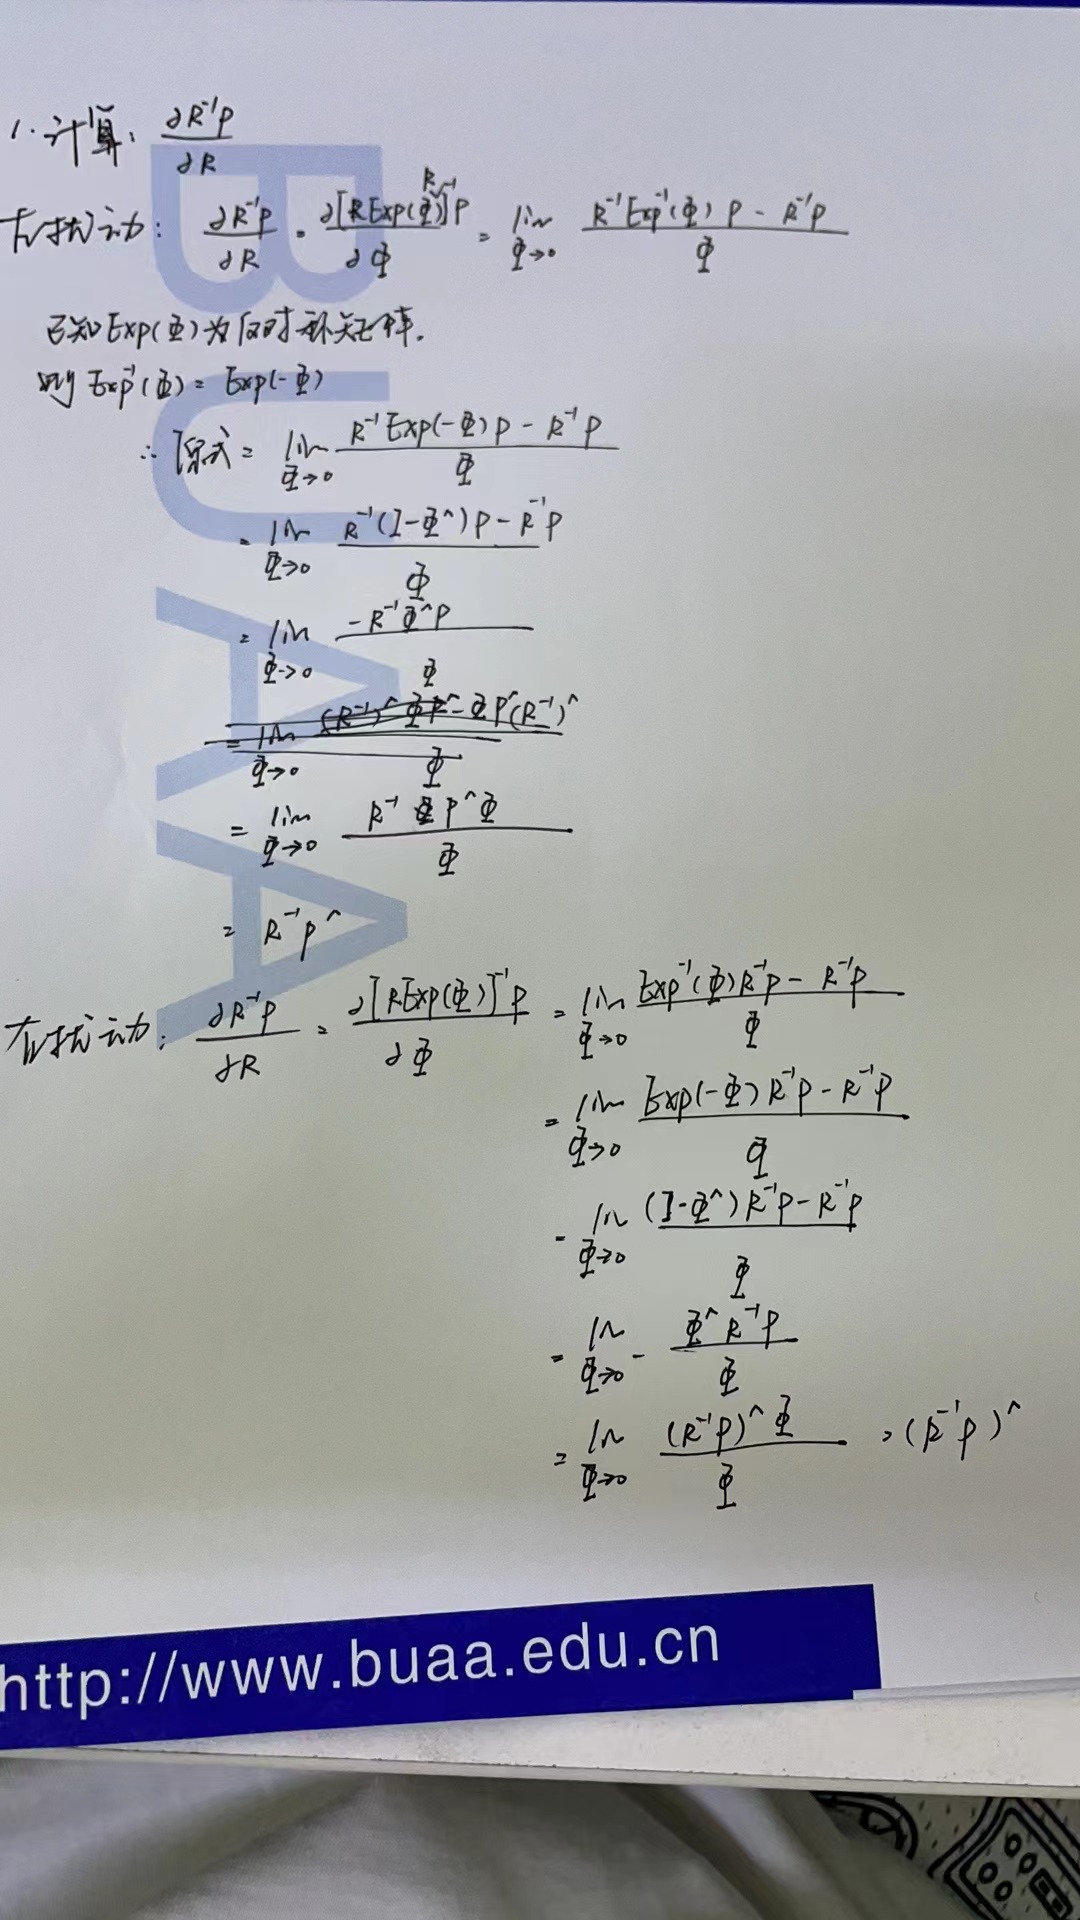 1. 计算: ∂R⁻¹p / ∂R
左扰动: ∂R⁻¹p / ∂R = ∂[R Exp(Φ)R]⁻¹p / ∂Φ = lim Φ→0 (R⁻¹Exp⁻¹(Φ)p - R⁻¹p) / Φ
已知Exp(Φ)为反对称矩阵.
则 Exp⁻¹(Φ) = Exp(-Φ)
∴ 原式 = lim Φ→0 (R⁻¹Exp(-Φ)p - R⁻¹p) / Φ
= lim Φ→0 (R⁻¹(I-Φ^)p - R⁻¹p) / Φ
= lim Φ→0 (-R⁻¹Φ^p) / Φ
= lim Φ→0 (R⁻¹p^Φ) / Φ
= R⁻¹p^
右扰动: ∂R⁻¹p / ∂R = ∂[R Exp(Φ)]⁻¹p / ∂Φ = lim Φ→0 (Exp⁻¹(Φ)R⁻¹p - R⁻¹p) / Φ
= lim Φ→0 (Exp(-Φ)R⁻¹p - R⁻¹p) / Φ
= lim Φ→0 ((I-Φ^)R⁻¹p - R⁻¹p) / Φ
= lim Φ→0 - Φ^R⁻¹p / Φ
= lim Φ→0 (R⁻¹p)^Φ / Φ = (R⁻¹p)^
BUAA
http://www.buaa.edu.cn